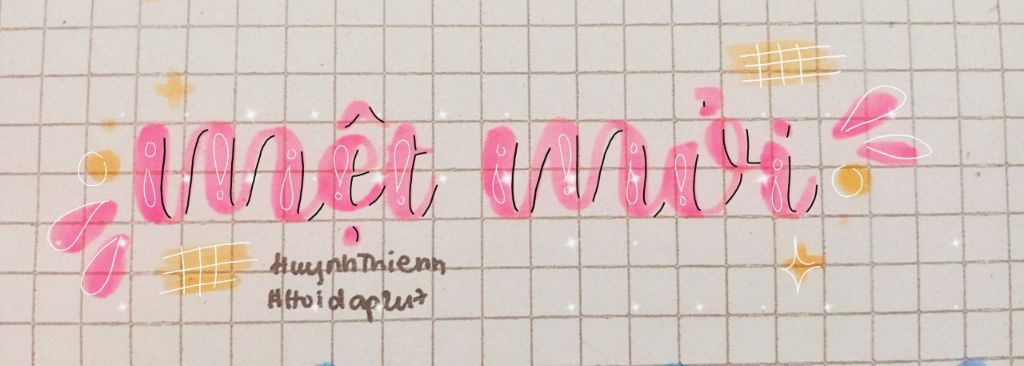 mệt mỏi
HuynhThienn
#Hoidap247